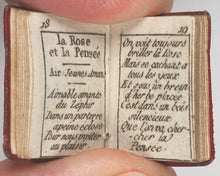 18
la Rose
et la Pensée
Aux Jeunes Amans
Aimable amante
du Zephir
Dans un parterre
apeine éclose
Pour nous inviter
au plaisir
19
On voit toujours
briller la Rose
Mais se cachant a
tous les yeux
Et sous un brein
d'herbe placée
C'est dans un bois
silencieux
Que l'on va cher-
cher la
Pensée